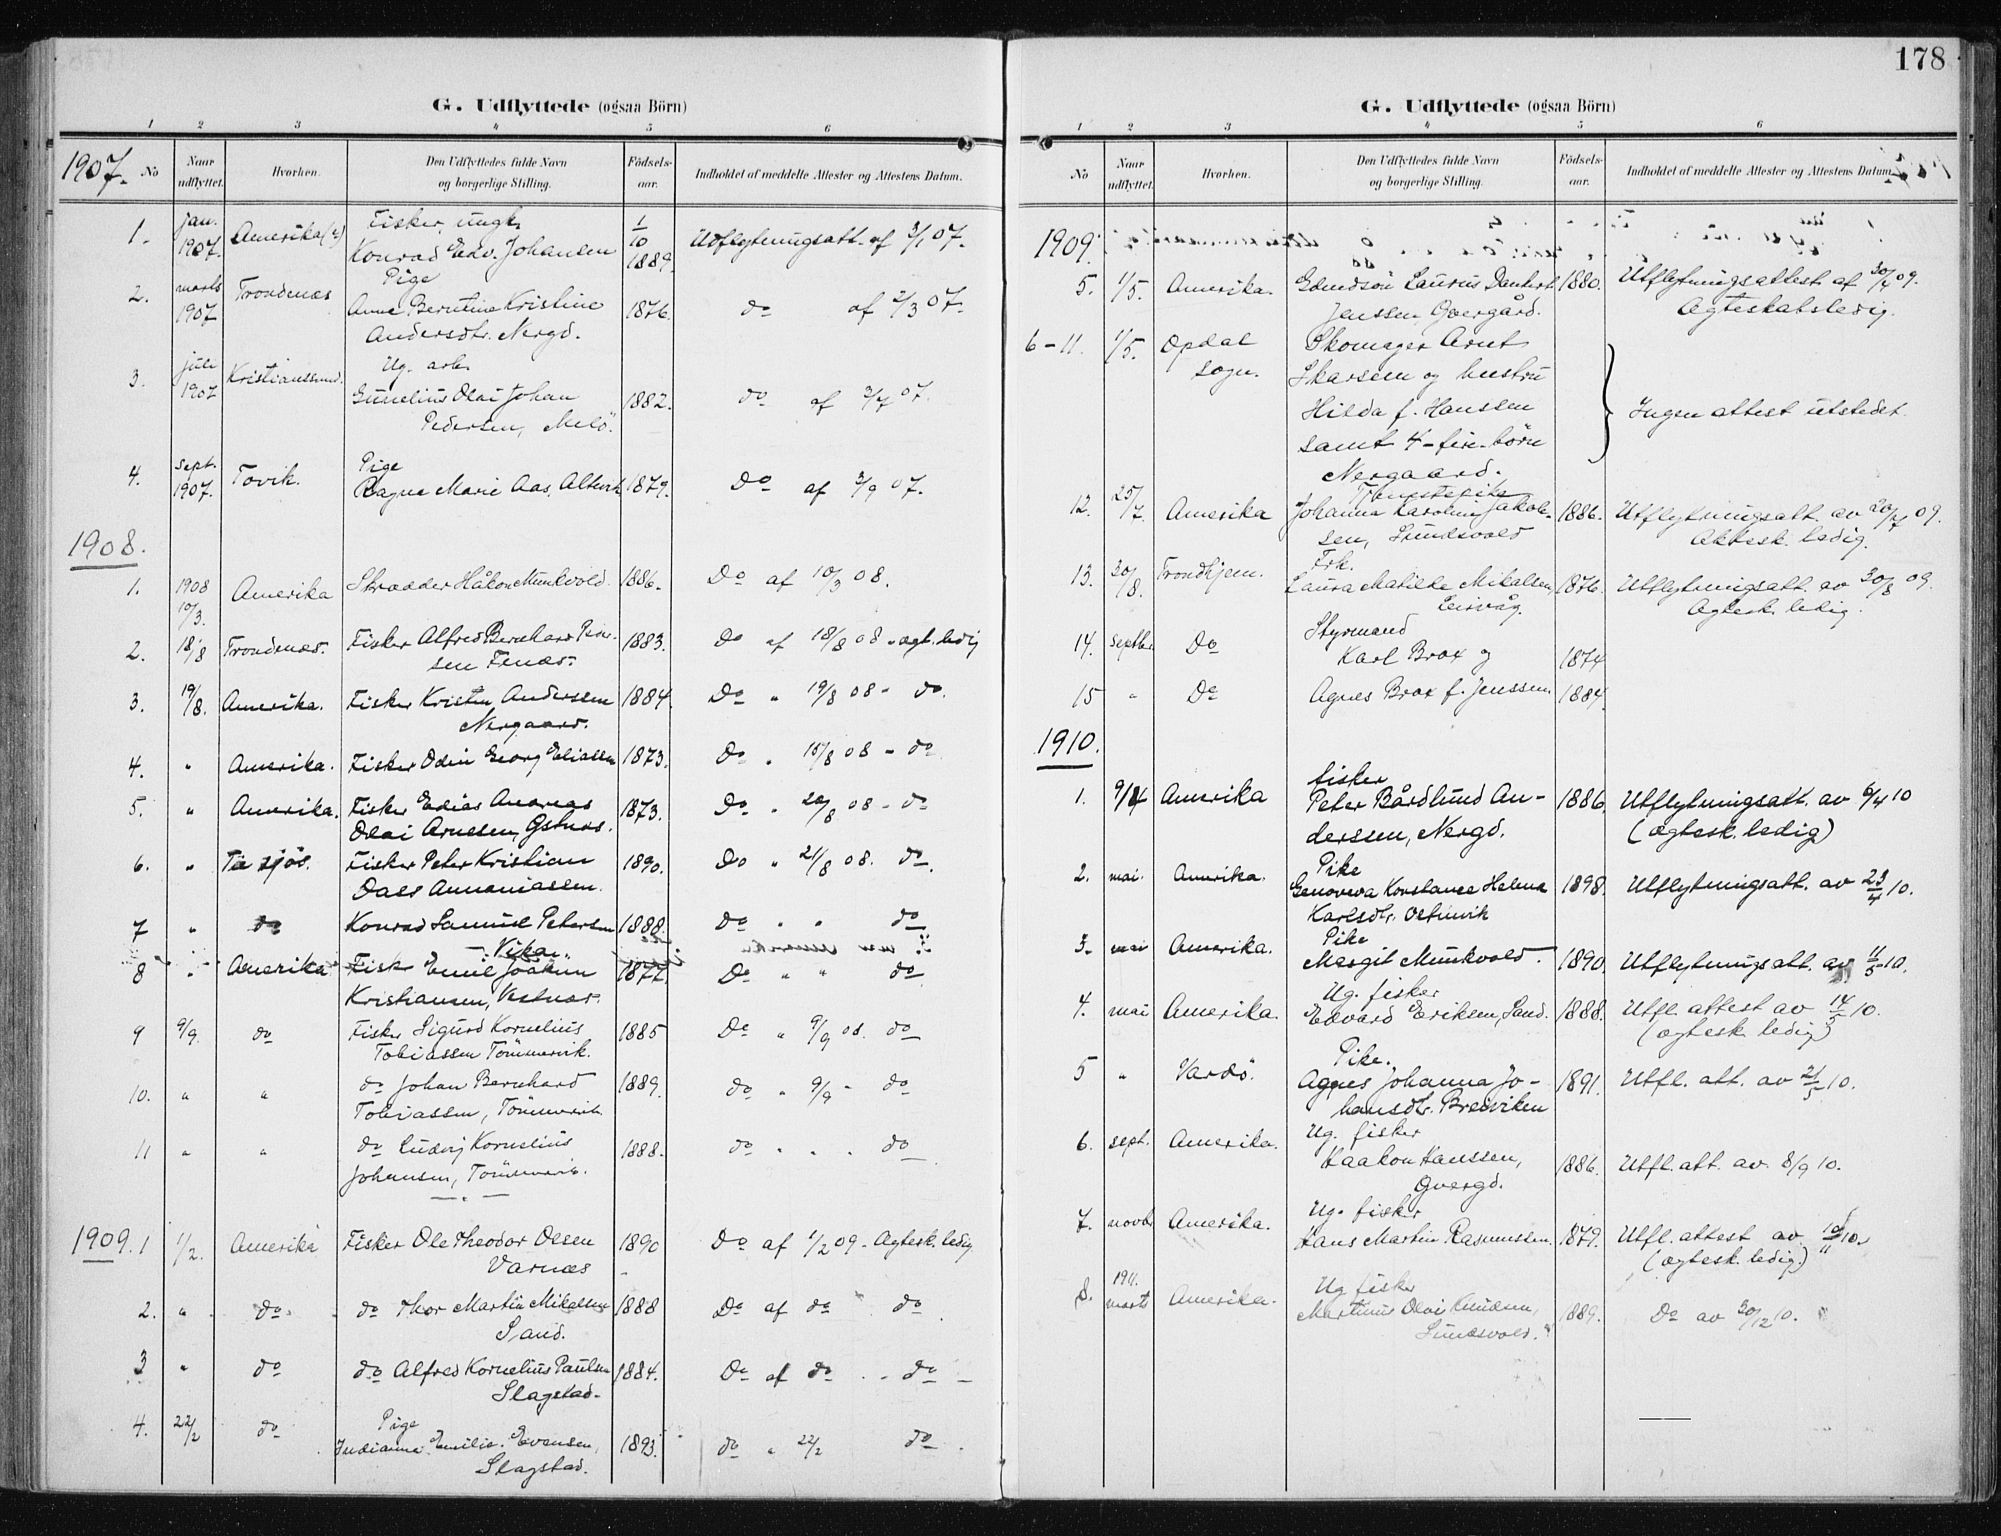 178
G. Udflyttede (ogsaa Börn)
1 2 3 4 5 6
1907. No Naar udflyttet. Hvorhen. Den Udflyttedes fulde Navn og borgerlige Stilling. Födsels-aar. Indholdet af meddelte Attester og Attestens Datum.
1. jan. 1907. Amerika Fisker, ungk.
Konrad Edv. Johansen 1/10 1889. Udflytningsatt. af 3/1 07.
2. marts 1907 Trondenæs Pige
Anna Berntine Kristine
Andersdtr. Nergd. 1876. do af 2/3 07.
3. juli 1907 Kristianssund. Ug. arb.
Gunelius Olai Johan
Pedersen, Melö. 1882. do af 3/7 07.
4. sept. 1907. Tovik. Pige
Ragna Marie Aas, Altevik 1879. Do af 3/9 07.
1908.
1. 1908 10/3. Amerika Skrædder Håkon Munkvold. 1886. Do af 10/3 08.
2. 18/8 Trondenæs. Fisker Alfred Bernhard
sen Fenæs. 1883. Do af 18/8 08 - ægt. ledig
3. 19/8. Amerika. Fisker Kristen Anderssen
Nergaard. 1884. Do " 19/8 08 - do.
4. " Amerika. Fisker Odin Georg Eliassen 1873. Do " 18/8 08 - do
5. " Amerika. Fisker Edias Andreas
Olai Arnesen, 1873. Do " 20/8 08 - do
6. " sjös. Fisker Peter Kristian
Dass Annaniassen. 1890. Do " 21/8 08. do.
7 " do Konrad Samuel Petersen
Vika. 1888. Do " " do
8 " Amerika Fisk Emil Joakim
Kristiansen, Vestnæs. 1877. Do " " do
9 9/9. do Fisker Sigurd Kornelius
Tobiassen Tömmervik. 1885 Do " 9/9 08. do
10. " " do Johan Bernhard
Tobiassen, Tömmervik 1889. do " 9/9 - do
11 " " do Ludvig Kornelius
Johansen, Tömmervik. 1888. do " " do
1909. 1 1/2. Amerika Fisker Ole Theodor Olsen
Varnæs 1890 Do af 1/2 09 - Ægtesk. ledig
2. " do do Thor Martin Mikalsen
Sand. 1888 Do af do do
3 " do do Alfred Kornelius Paulsen
Slagstad. 1884. Do af do - do
4. 22/2 do Pige
Indianna Emilie Evensen,
Slagstad. 1893. do " 22/2 do
G. Udflyttede (ogsaa Börn)
1 2 3 4 5 6
No Naar udflyttet. Hvorhen. Den Udflyttedes fulde Navn og borgerlige Stilling. Födsels-aar. Indholdet af meddelte Attester og Attestens Datum.
1909.
5. 1/5. Amerika. Edmdsön Laurus Dankert
Jenssen Qvergård. 1880. Utflytningsattest af 30/4 09.
Ægteskabsledig.
6-11. 1/5. Opdal sogn. Skomager Arnt
Skarsem og hustru
Hilda f. Hanssen
samt 4-fire-börn
Nergaard. Ingen attest utstedet.
12. 25/7. Amerika Tjenestepike
Johanna Karoline Jakob-
sen, Sundsvold 1886. Utflytningsatt. av 20/7 09.
Æktesk. ledig.
13. 20/8. Trondhjem. Frk.
Laura Matilde Mikalsen,
Leirvåg. 1876. Utflytningsatt. av 20/8 09.
Ægtesk. ledig.
14. septbr. Do Styrmand
Karl Brox og 1874
15 " Do Agnes Brox f. Jenssen. 1884.
1910.
1. 9/4 Amerika fisker
Peter Bårdlund An-
derssen, Nergd. 1886. Utflytningsatt. av 6/4 10
(ægtesk. ledig)
2. mai. Amerika. Pike
Genoveva Konstance Helena
Karlsdtr. 1898. Utflytningsatt. av 23/4 10.
3. mai Amerika. Pike
Margit Munkvold. 1890. Utflytningsatt. av 11/5 10.
4. mai Amerika. Ug. fisker
Edvard Eriksen, Sand. 1888. Utfl. attest av 14/5 10.
(ægtesk. ledig)
5 " Vardö. Pike.
Agnes Johanna Jo-
hansdtr. Breiviken 1891. Utfl. att. av 21/5 10.
6. sept. Amerika. Ug. fisker
Haakon Hanssen,
Qvergd. 1886. Utfl. att. av 8/9 10.
7. novbr Amerika. Ug. fisker
Hans Martin Rasmussen. 1879. Utfl. attest av 10/11 10.
(ægtesk. ledig.)
8. 1911. marts Amerika. Ug fisker
Martinus Olai Knudsen,
Sundsvold. 1889. Do av 30/12 10.